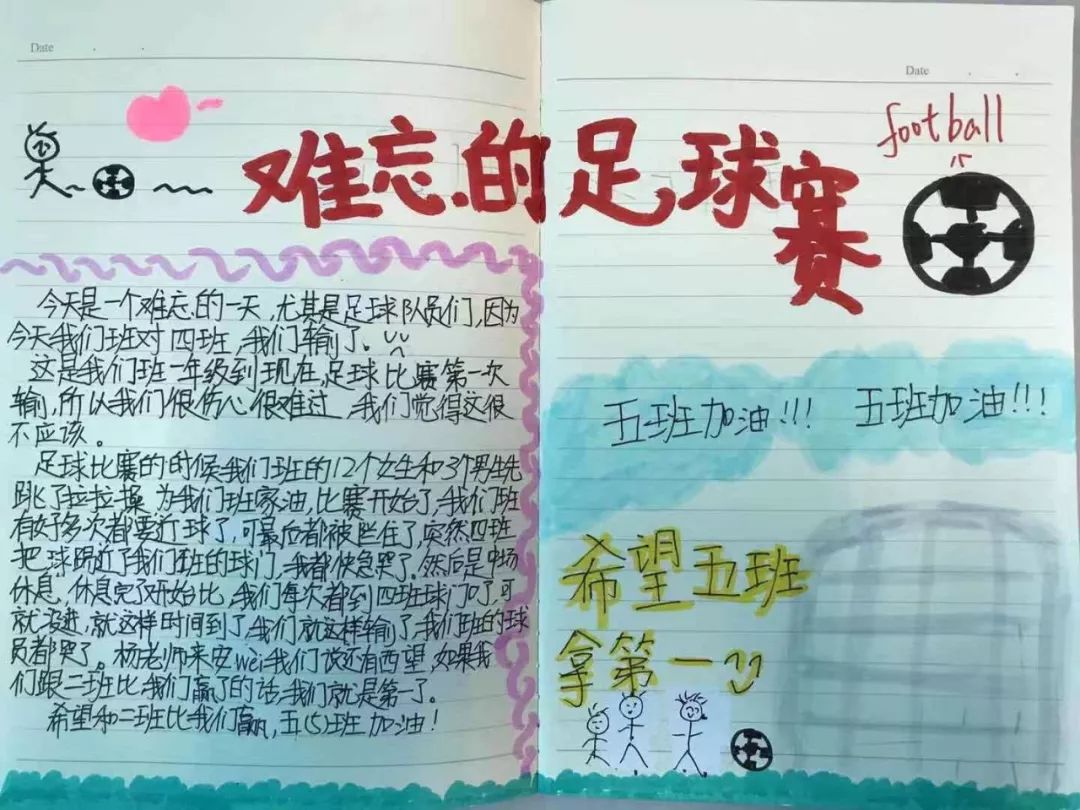 Date
Date
football
难忘的足球赛
今天是一个难忘的一天,尤其是足球队员们,因为
今天我们班对四班,我们输了。
这是我们班一年级到现在,足球比赛第一次
输,所以我们很伤心很难过,我们觉得这很
不应该。
足球比赛的时候我们班的12个女生和3个男生先
跳了拉拉操,为我们班家油,比赛开始了,我们班
有好多次都要近球了,可最后都被拦住了,突然四班
把球踢近了我们班的球门,我都快急哭了。然后是中场
休息,休息完了开始比,我们每次都到四班球门口了,可
就没进,就这样时间到了,我们就这样输了,我们班的球
员都哭了。杨老师来安wei我们说还有西望,如果我
们跟二班比我们赢了的话,我们就是第一了。
希望和二班比我们赢,五(5)班加油!
五班加油!!! 五班加油!!!
希望五班
拿第一